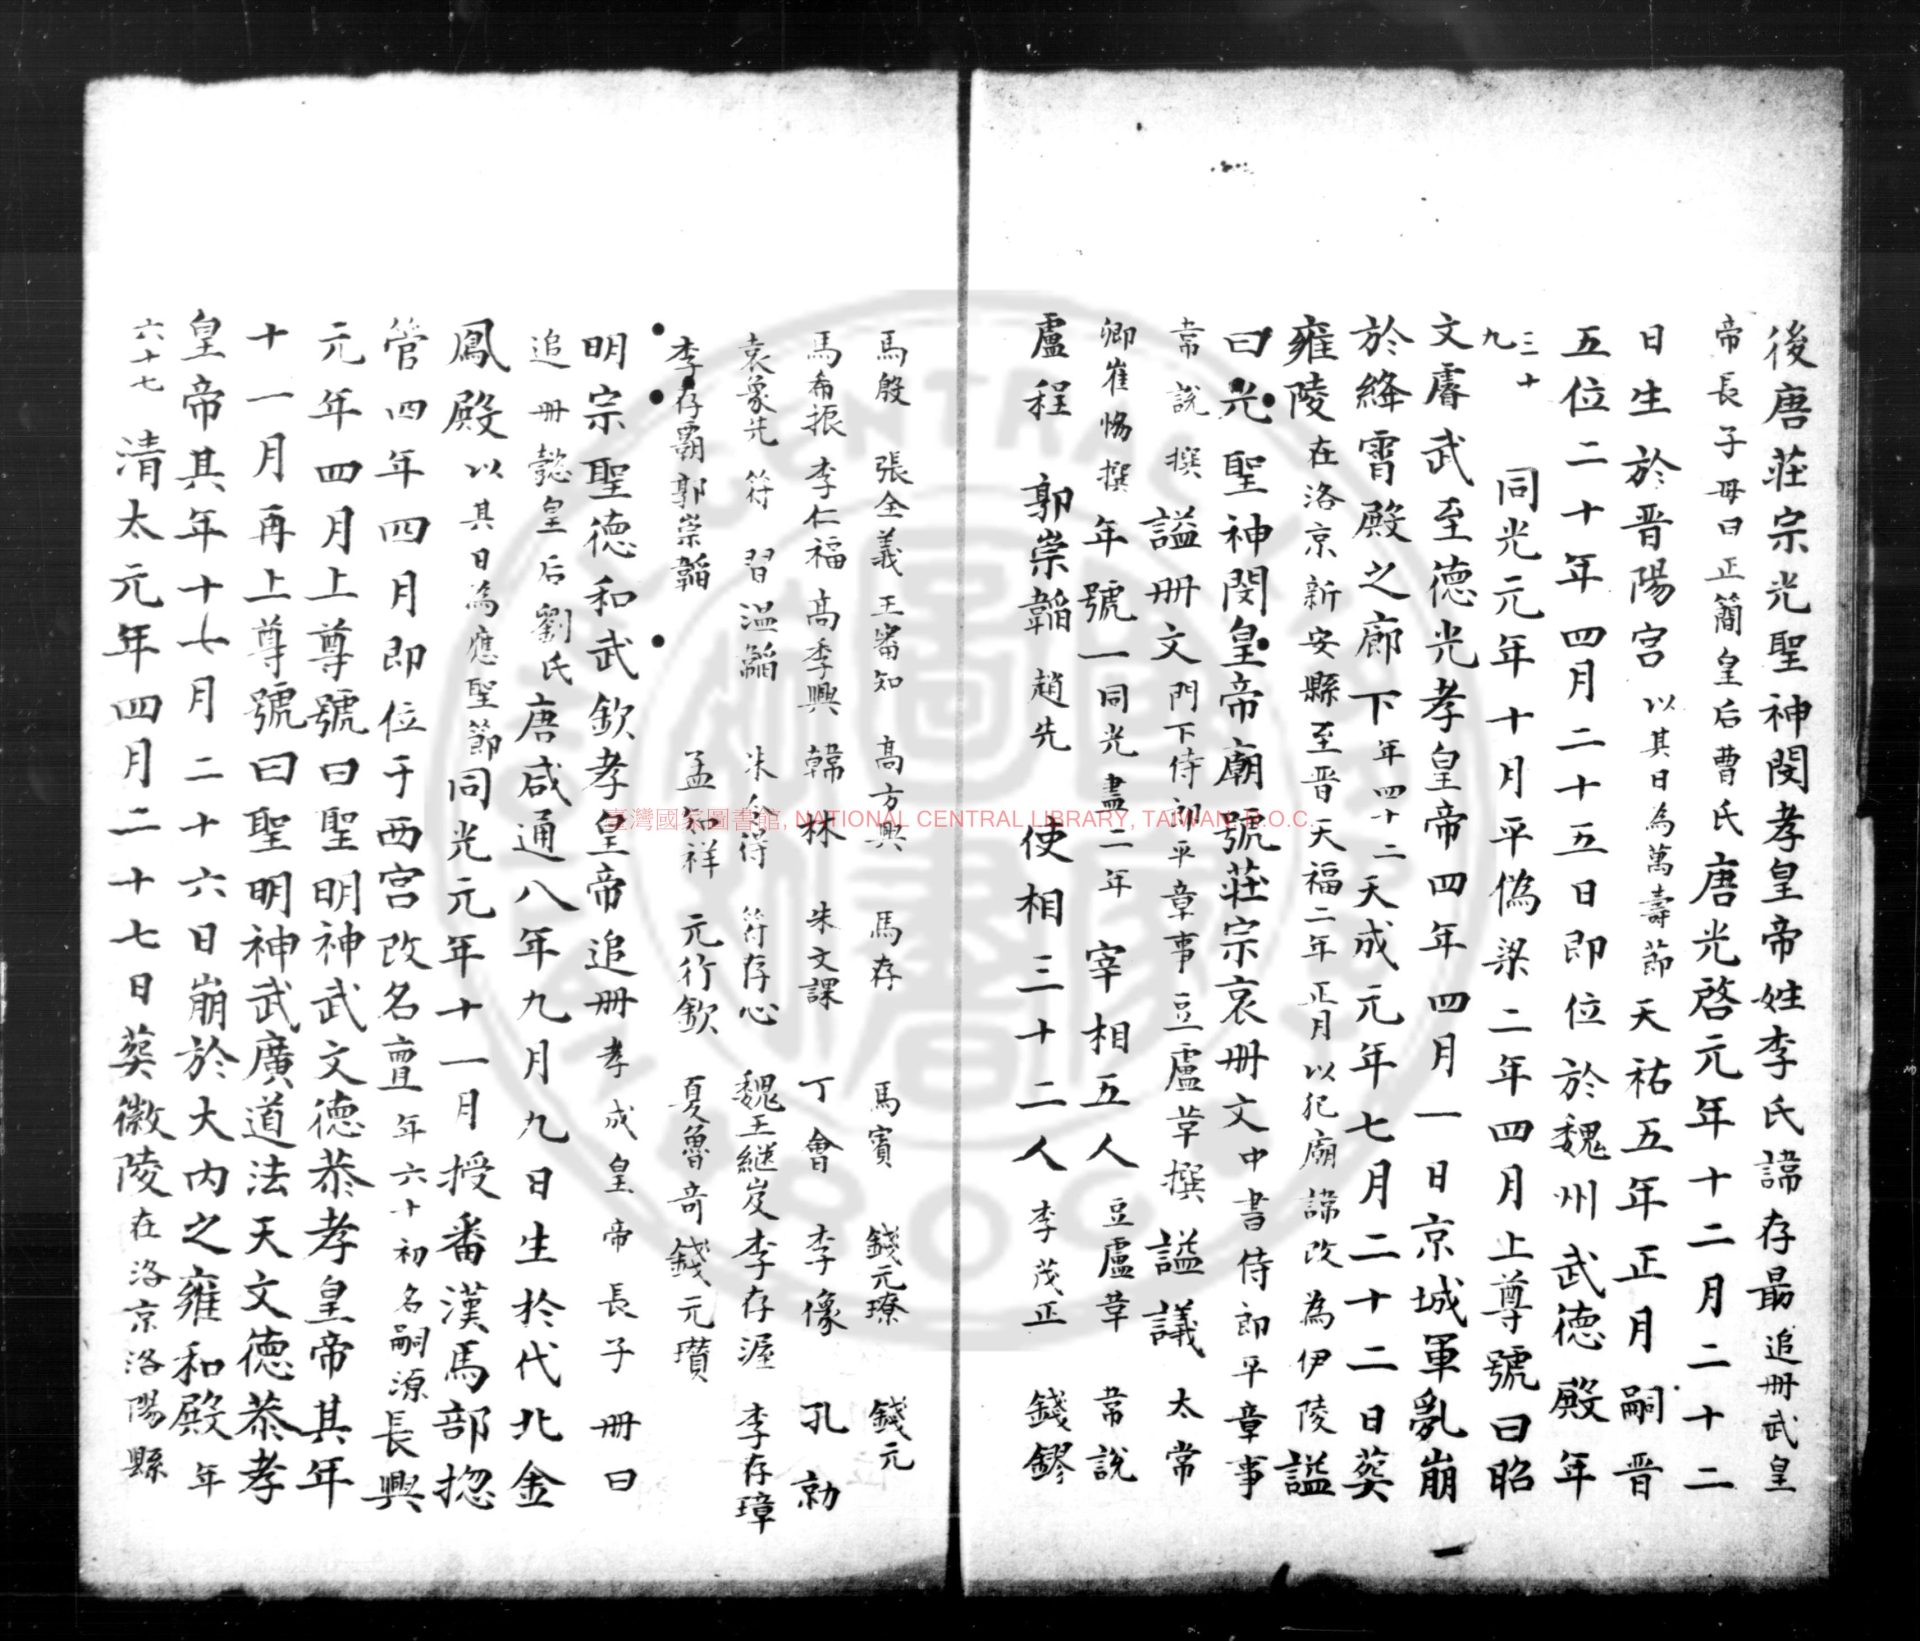 後唐莊宗光聖神閔孝皇帝姓李氏諱存最追冊武皇
帝長子母曰正簡皇后曹氏唐光啓元年十二月二十二
日生於晋陽宮以其日為萬壽節天祐五年正月嗣晋
五位二十年四月二十五日即位於魏州武德殿年
三十九同光元年十月平偽梁二年四月上尊號曰昭
文睿武至德光孝皇帝四年四月一日京城軍亂崩
於絳霄殿之廊下年四十二天成元年七月二十二日葬
雍陵在洛京新安縣至晋天福二年正月以犯廟諱改為伊陵謚
曰光聖神閔皇帝廟號莊宗哀冊文中書侍郎平章事
韋說撰謚冊文門下侍郎平章事豆盧革撰謚議太常
卿崔惕撰年號一同光盡二年宰相五人豆盧革韋說
盧程郭崇韜趙先使相三十二人李茂正錢鏐
馬殷張全義王審知高方興馬存馬賓錢元璙錢元
馬希振李仁福高季興韓林朱文課丁會李像孔勍
袁象先符習溫韜朱令得符存心魏王継岌李存渥李存璋
李存霸郭崇韜孟知祥元行欽夏魯奇錢元瓚
明宗聖德和武欽孝皇帝追冊孝成皇帝長子冊曰
追冊懿皇后劉氏唐咸通八年九月九日生於代北金
鳳殿以其日為應聖節同光元年十一月授番漢馬部揔
管四年四月即位于西宮改名亶年六十初名嗣源長興
元年四月上尊號曰聖明神武文德恭孝皇帝其年
十一月再上尊號曰聖明神武廣道法天文德恭孝
皇帝其年十七月二十六日崩於大內之雍和殿年
六十七清太元年四月二十七日葬徽陵在洛京洛陽縣
臺灣國家圖書館, NATIONAL CENTRAL LIBRARY, TAIWAN, R.O.C.